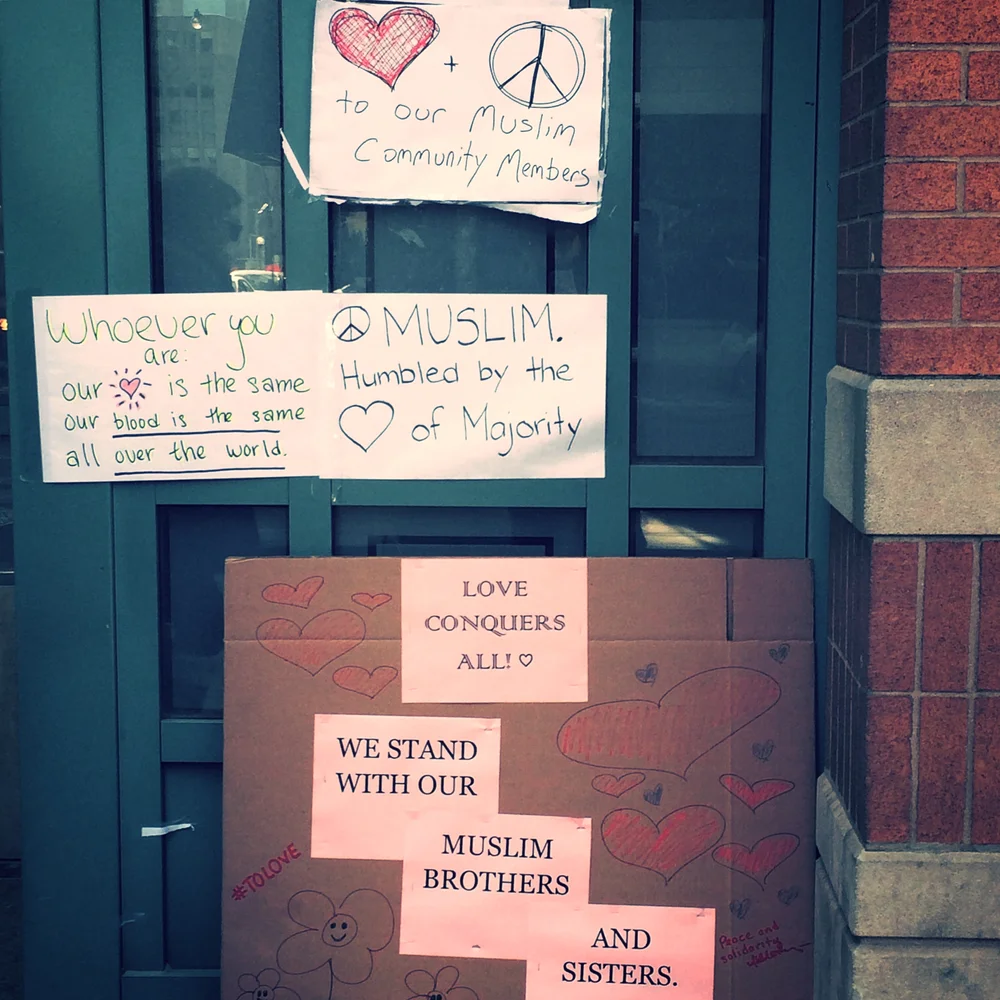 +
to our Muslim
Community Members
Whoever you
are:
our is the same
our blood is the same
all over the world.
MUSLIM.
Humbled by the
of Majority
LOVE
CONQUERS
ALL!
WE STAND
WITH OUR
MUSLIM
BROTHERS
AND
SISTERS.
#TOLOVE
Peace and
solidarity